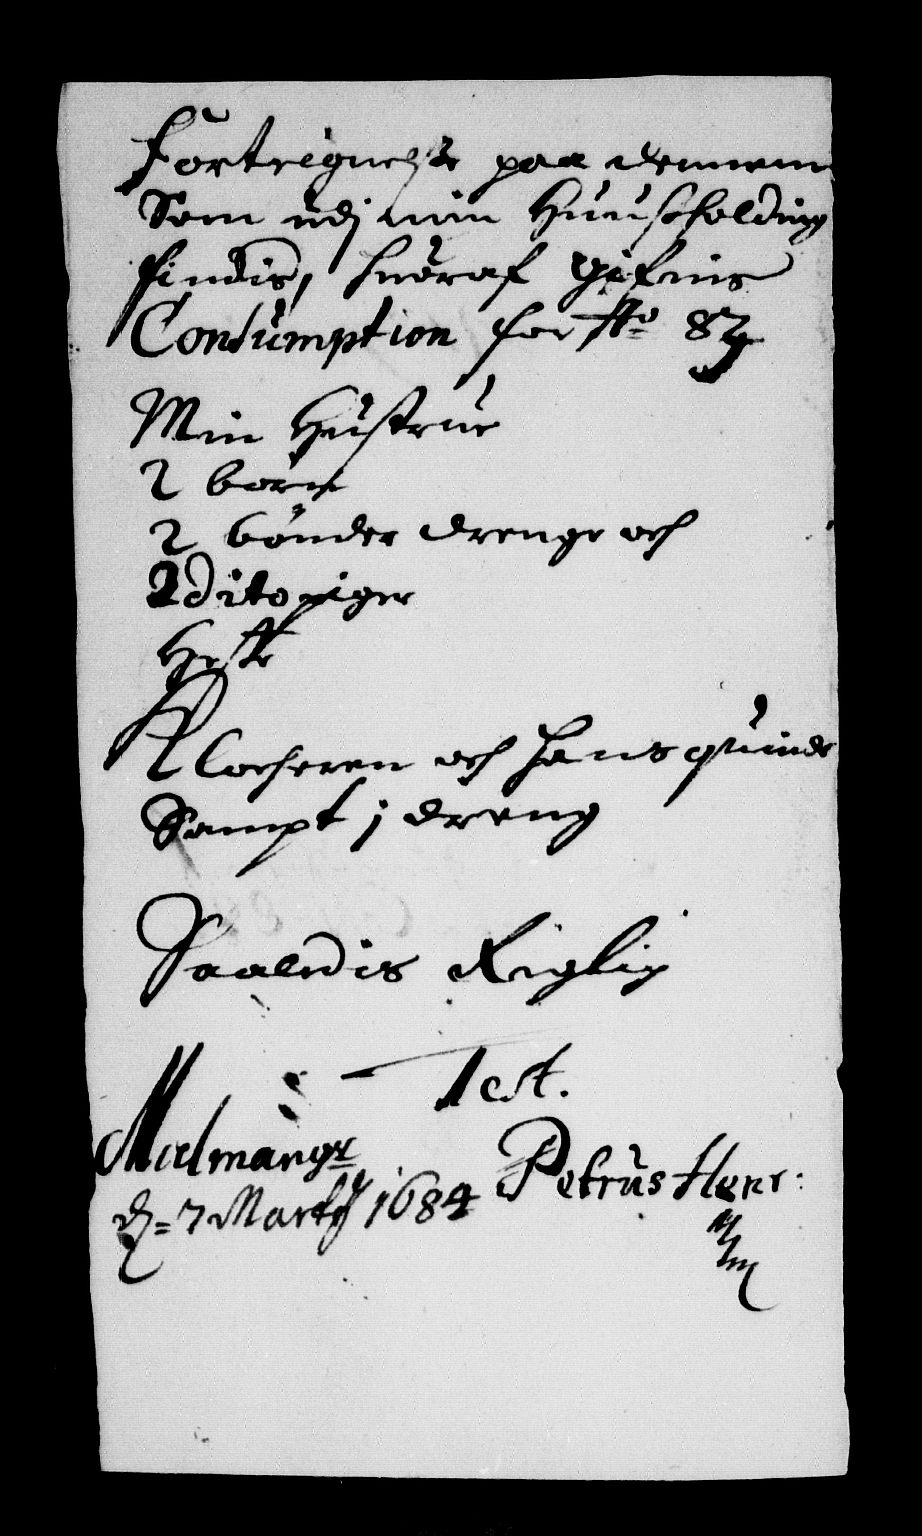 Forteignelse paa dennem
Som udj min Huusholding
findis, huoraf gifvis
Consumption for Ao 84
Min Hustrue
2 børn
2 bønder drenge och
2 dito piger
Heste
Klocheren och hans quinde
Sampt j dreng
Saaledis Rigtig
Test.
Malmangr
d. 7 Martij 1684
Petrus Henr: